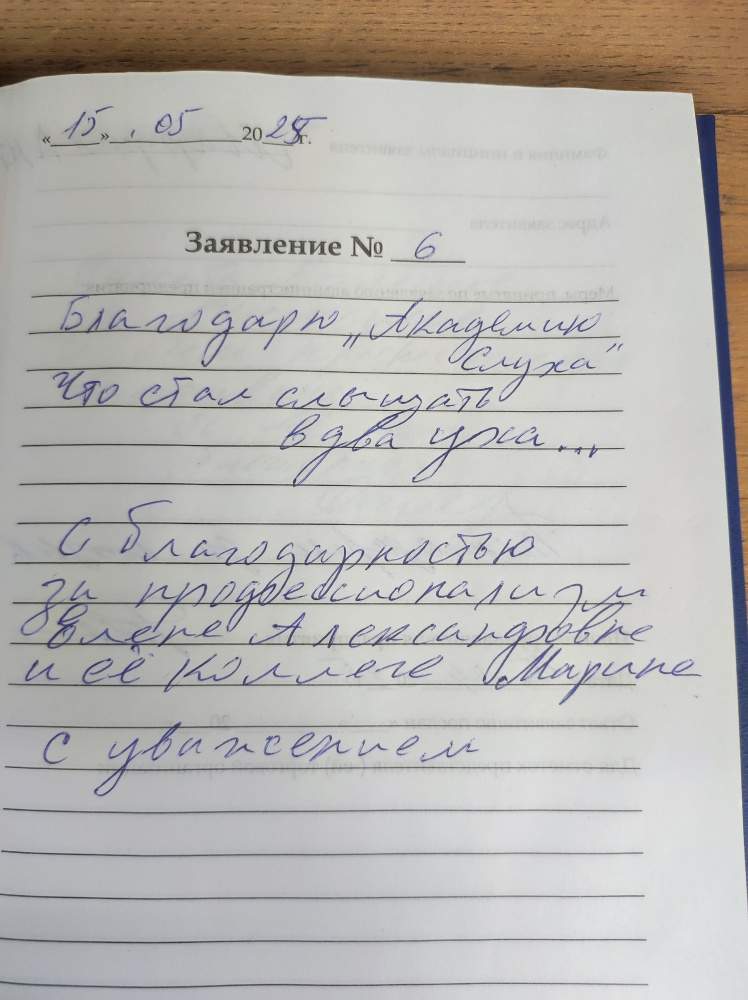 «15» . 05 2025 г.
Заявление № 6
Благодарю „Академию
Слуха"
Что стал слышать
в два уха...
С благодарностью
за профессионализм
Елене Александровне
и её коллеге Марине
с уважением